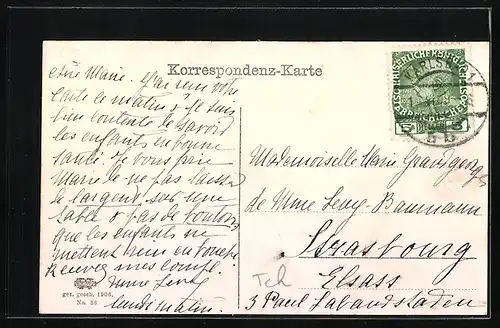 Korrespondenz-Karte
chère Marie. J'ai reçu votre
carte ce matin & je suis
bien contente de savoir
les enfants en bonne
santé. Je vous prie
Marie de ne pas laisser
de l'argent sur une
table & pas de
que les enfants ne
mettent rien en bouche
mes compl.
Mme Levy
lundi matin.
ges. gesch. 1906.
No. 36
KARLSBAD 1
5 5
Mademoiselle Marie
de Mme Levy-Baumann
Strasbourg
Elsass
3 Paul
Tch